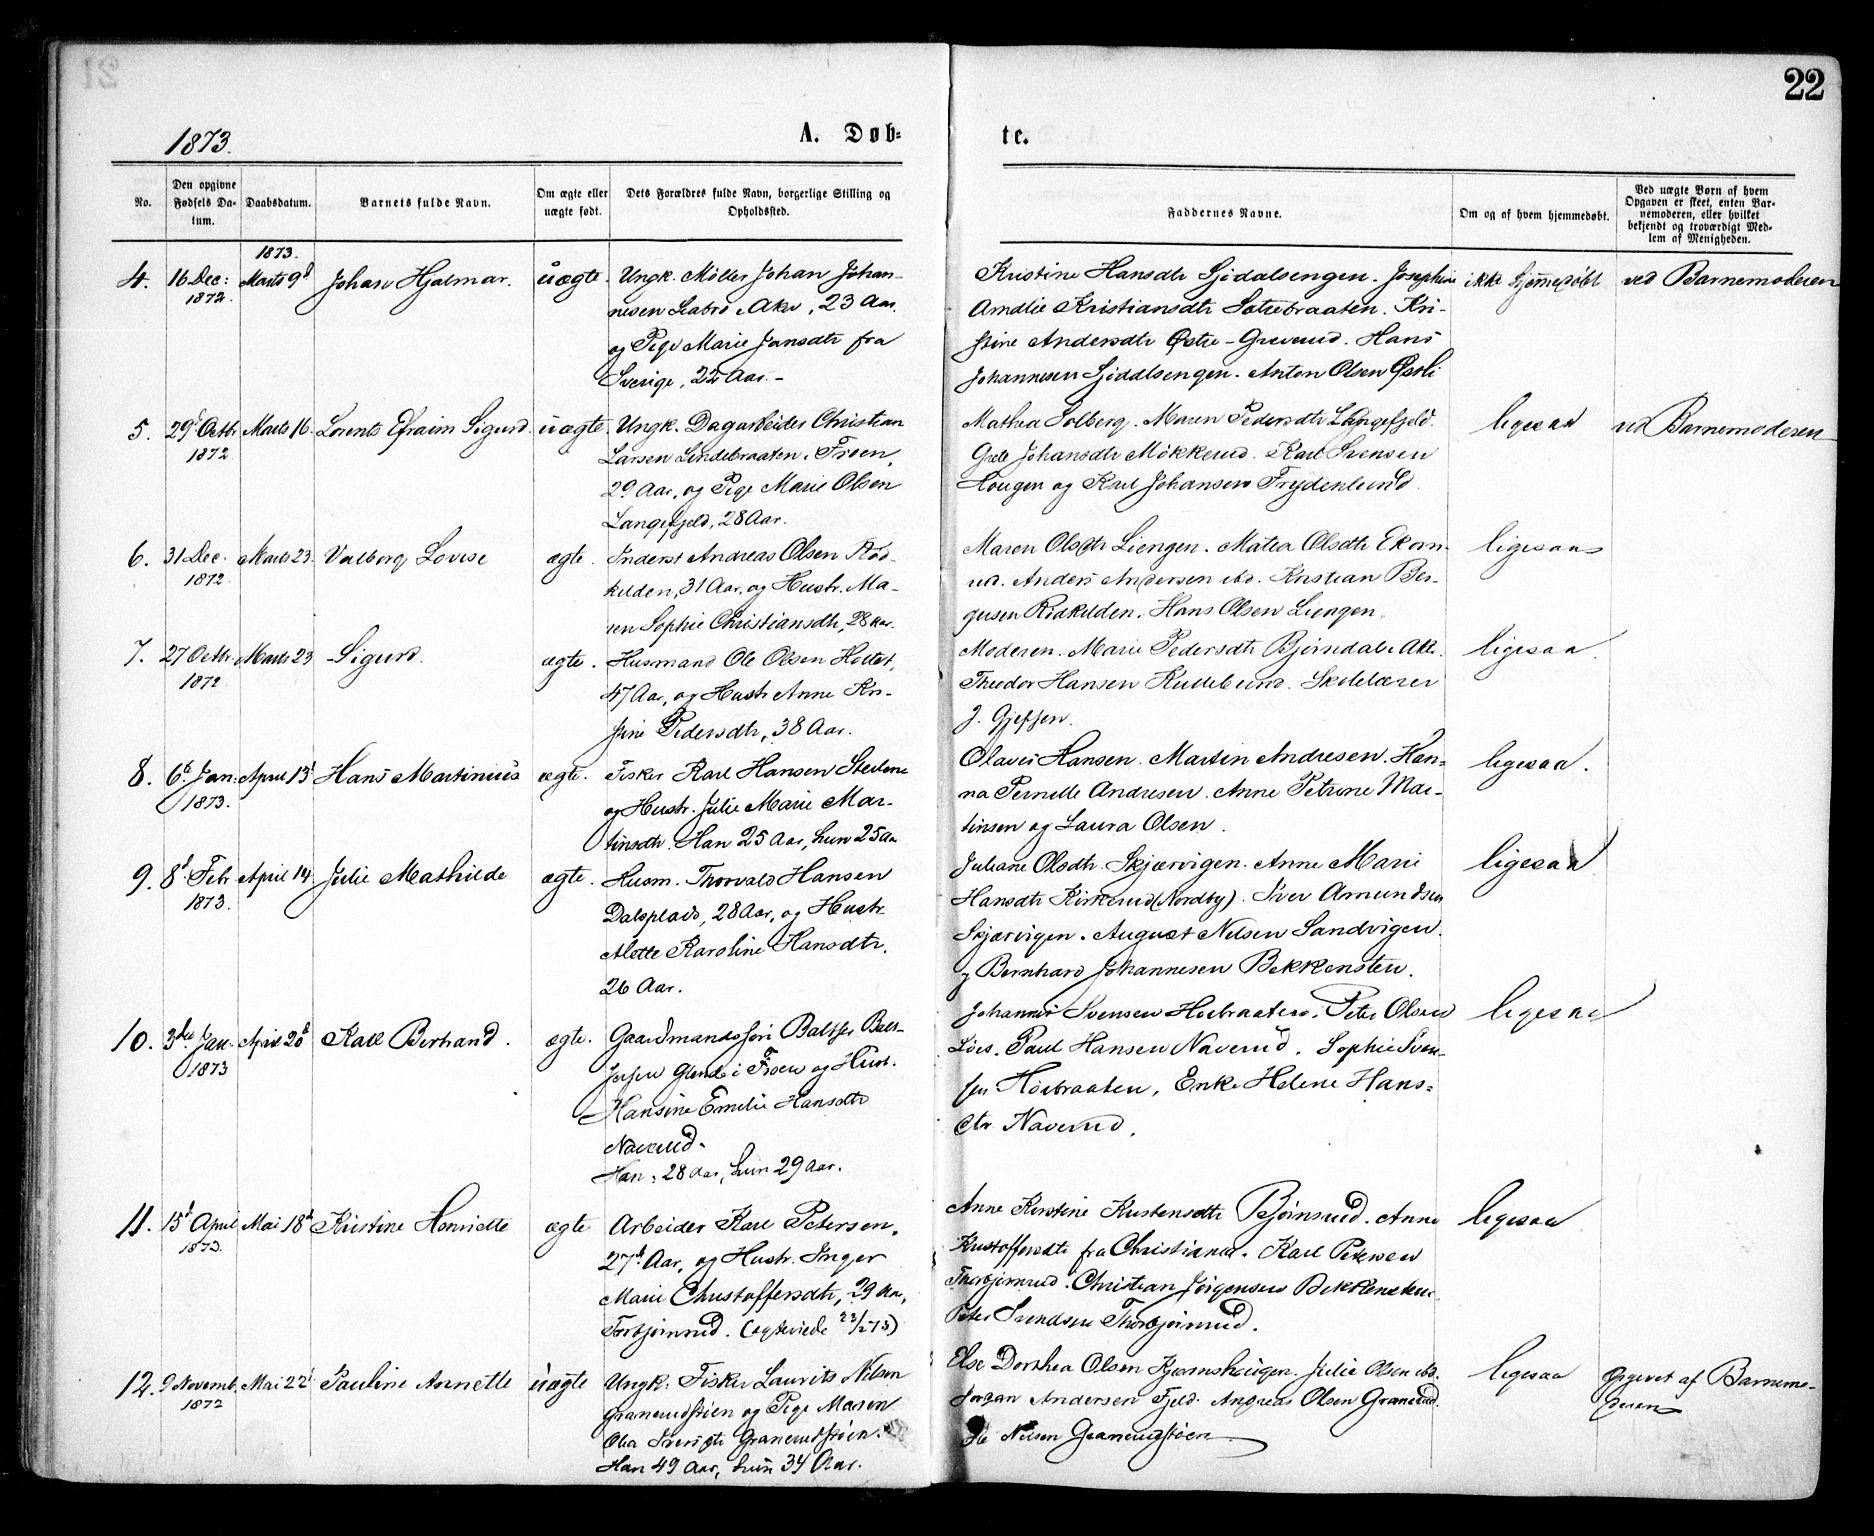 22
1873.
A. Døb-
te.
No.
Den opgivne Fødsels Da-tum.
Daabsdatum.
Barnets fulde Navn.
Om ægte eller uægte født.
Dets Forældres fulde Navn, borgerlige Stilling og Opholdssted.
Faddernes Navne.
Om og af hvem hjemmedøbt.
Ved uægte Børn af hvem Opgaven er skeet, enten Bar-nemoderen, eller hvilket bekjendt og troværdigt Med-lem af Menigheden.
1873.
4. 16 Dec: Marts 9d Johan Hjalmar. uægte. Ungk. Møller Johan Johan-
1872.
nesen Aker, 23 Aar,
og Pige Marie Jansdtr fra
Sverige, 22 Aar.-
Kristine Hansdtr Sjødalsengen. Josephine ikke hjemmedøbt ved Barnemoderen
Amalie Kristiansdtr Sætrebraaten. Kri-
stine Andersdtr Østre-Greverud. Hans
Johannesen Sjødalsengen. Anton Olsen Østli
5. 29d Octbr Marts 16. Lorents Efraim Sigurd. uægte. Ungk. Dagarbeider Christian
1872.
Larsen Lindebraaten i Froen,
29 Aar, og Pige Marie Olsen
Langefjeld, 28 Aar.
Mathea Solberg. Maren Pedersdtr Langefjeld. ligesaa ved Barnemoderen
Johansdtr Møkkerud. Karl Svensen
Hougen og Karl Johansen Frydenlund.
6. 31 Dec. Marts 23. Valborg Lovise ægte. Inderst Andreas Olsen Rød-
1872.
kilden, 31 Aar, og Hustr. Ma-
ren Sophie Christiansdtr, 28 Aar.
Maren Olsdtr Liengen. Matea Olsdtr Ekorn- ligesaa
rud. Anders Andersen ibd. Kristian Ber-
gersen Rødkilden. Hans Olsen Liengen.
7. 27 Octbr Marts 23 Sigurd. ægte. Husmand Ole Olsen Hottet,
1872.
47 Aar, og Hustr Anne Kri-
stine Pedersdtr, 38 Aar.
Moderen. Marie Pedersdtr Bjørndal i Aker. ligesaa.
Theodor Hansen Kullebund. Skolelærer
J. Gjessen.
8. 6d Jan: April 13d Hans Martinius ægte. Fisker Karl Hansen Steilene
1873.
og Hustr. Julie Marie Mar-
tinsdtr. Han 25 Aar, hun 25 Aar
Olaves Hansen. Martin Andresen. Han- ligesaa.
na Pernille Andresen. Anne Petrine Mar-
tinsen og Laura Olsen.
9. 8d Febr April 14. Julie Mathilde ægte. Husm. Thorvald Hansen
1873.
Dalsplads, 28 Aar, og Hustr.
Alette Karoline Hansdtr.
26 Aar.
Juliane Olsdtr. Skjærvigen. Anne Marie ligesaa
Hansdtr Kirkerud (Nordby). Iver Amundsen
Skjærvigen. August Nilsen Sandvigen.
og Bernhard Johannesen Bekkensten.
10. 3die Jan. April 20d Karl Bertrand. ægte. Gaardmandssøn Baltser Balt-
1873
sersen Glende i Froen og Hust.
Hansine Emilie Hansdtr
Naverud.
Han: 28 Aar, hun 29 Aar.
Johannes Svensen Høibraaten. Peter Olsen ligesaa
Løes. Paul Hansen Naverud. Sophie Sven-
sen Høibraaten, Enke Helene Hans-
dtr Naverud.
11. 15d April Mai 18d Kristine Henriette ægte Arbeider Karl Petersen,
1873.
27d Aar, og Hustr. Inger
Marie Christoffersdtr, 29 Aar,
Torbjørnrud. (ægteviede 23/2 73)
Anne Kirstine Kristensdtr Bjørnsrud. Anne ligesaa
Kristoffersdtr fra Christiania. Karl Petersen
Thorbjørnrud. Christian Jørgensen Bekkensten.
Peter Svendsen Thorbjørnrud.
12. 9 Novemb. Mai 22d Pauline Annette uægte Ungk: Fisker Laurits Nilsen
1872
Granerudstøen og Pige Maren
Olia Iversdtr Granerudstøen.
Han 49 Aar, hun 34 Aar.
Else Dorthea Olsen Kjærnshaugen. Julie Olsen ibd. ligesaa Opgivet af Barnemo-
Johan Andersen Fjeld. Andreas Olsen Granerud. deren
Ole Nilsen Granerudstøen